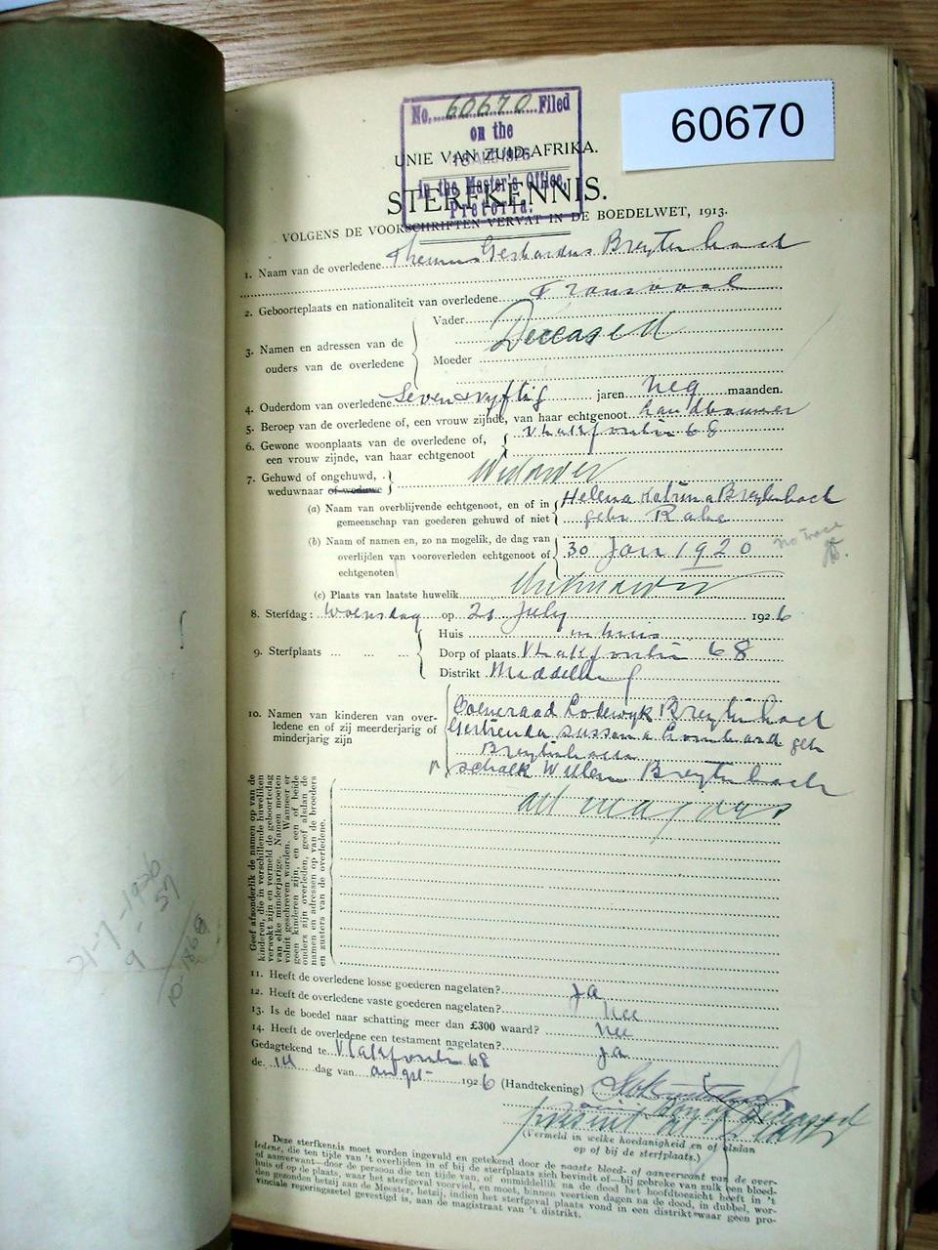 60670
No. 60670 Filed
on the
in the Master's Office,
Pretoria.
UNIE VAN ZUID-AFRIKA.
STERFKENNIS.
VOLGENS DE VOORSCHRIFTEN VERVAT IN DE BOEDELWET, 1913.
1. Naam van de overledene Theunis Gerhardus Breytenbach
2. Geboorteplaats en nationaliteit van overledene Transvaal
3. Namen en adressen van de ouders van de overledene
Vader
Deceased
Moeder
4. Ouderdom van overledene Seven & vyftig jaren neg maanden.
5. Beroep van de overledene of, een vrouw zijnde, van haar echtgenoot landbouwer
6. Gewone woonplaats van de overledene of, een vrouw zijnde, van haar echtgenoot Vlakfontein 68
7. Gehuwd of ongehuwd, weduwnaar of weduwe
(a) Naam van overblijvende echtgenoot, en of in Helena Katrina Breytenbach
gemeenschap van goederen gehuwd of niet gebr Rabe
(b) Naam of namen en, zo na mogelik, de dag van
overlijden van vooroverleden echtgenoot of 30 Jan 1920 no trace
echtgenoten
(c) Plaats van laatste huwelik
8. Sterfdag: Woensdag op 21 July 1926
9. Sterfplaats ... ... ...
Huis in huis
Dorp of plaats Vlakfontein 68
Distrikt Middelburg
10. Namen van kinderen van overledene en of zij meerderjarig of minderjarig zijn
Coenraad Lodewyk Breytenbach
Gertrenda Sussana Lombaard geb
Breytenbach
Schalk Willem Breytenbach
all majors
Geef afzonderlik de namen op van de
kinderen, die in verschillende huweliken
verwekt zijn en vermeld de geboortedag
van elke minderjarige. Namen moeten
voluit geschreven worden. Wanneer er
geen kinderen zijn, en een of beide
ouders zijn overleden, geef alsdan de
namen en adressen op van de broeders
en zusters van de overledene.
21-7-1926
9 - 57
10-1868
11. Heeft de overledene losse goederen nagelaten? Ja
12. Heeft de overledene vaste goederen nagelaten? Nee
13. Is de boedel naar schatting meer dan £300 waard? Nee
14. Heeft de overledene een testament nagelaten? Ja
Gedagtekend te Vlakfontein 68
de 14 dag van 1926 (Handtekening)
(Vermeld in welke hoedanigheid en of alsdan
op of bij de sterfplaats.)
Deze sterfkennis moet worden ingevuld en getekend door de naaste bloed- of aanverwant van de over-
ledene, die ten tijde van 't overlijden in of bij de sterfplaats zich bevindt of—bij gebreke van zulk een bloed-
of aanverwant—door de persoon die ten tijde van, of onmiddellik na de dood het hoofdtoezicht heeft in 't
huis of op de plaats, waar het sterfgeval voorviel, en moet, binnen veertien dagen na de dood, in dubbel, wor-
den gezonden hetzij aan de Meester, hetzij, indien het sterfgeval plaats vond in een distrikt waar geen pro-
vinciale regeringszetel gevestigd is, aan de magistraat van 't distrikt.